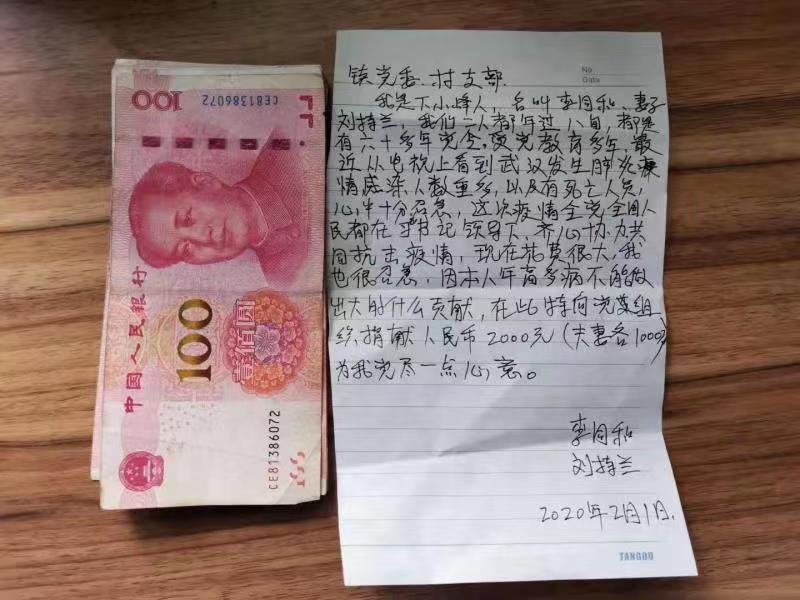 100
CE81386072
中国人民银行
100
壹佰圆
CE81386072
No.
Date
镇党委、村支部
我是下小峰人,名叫李月和、妻子
刘持兰,我们二人都年过八旬,都是
有六十多年党令,受党教育多年,最
近从电视上看到武汉发生肺炎疫
情感染人数重多,以及有死亡人员,
心中十分召急,这次疫情全党全国人
民都在习书记领导下齐心协力共
同抗击疫情,现在花费很大,我
也很召急,因本人年高多病不能做
出大的什么贡献,在此特向党组
织捐献人民币2000元(夫妻各1000)
为我党尽一点心意。
李月和
刘持兰
2020年2月1日.
TANGOU